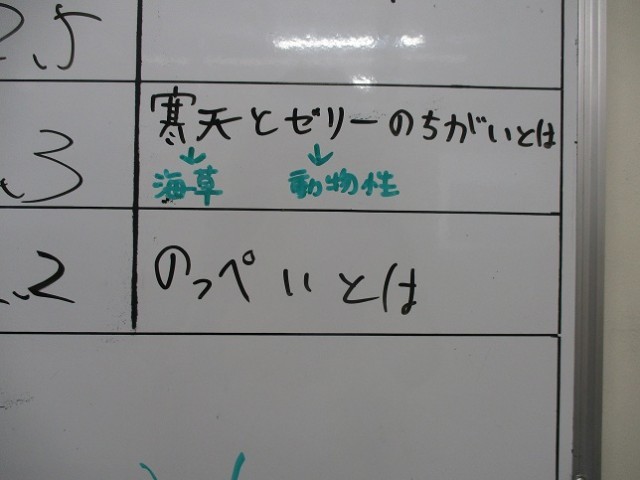 2.5
寒天とゼリーのちがいとは
海草 動物性
.3
のっぺいとは
.2